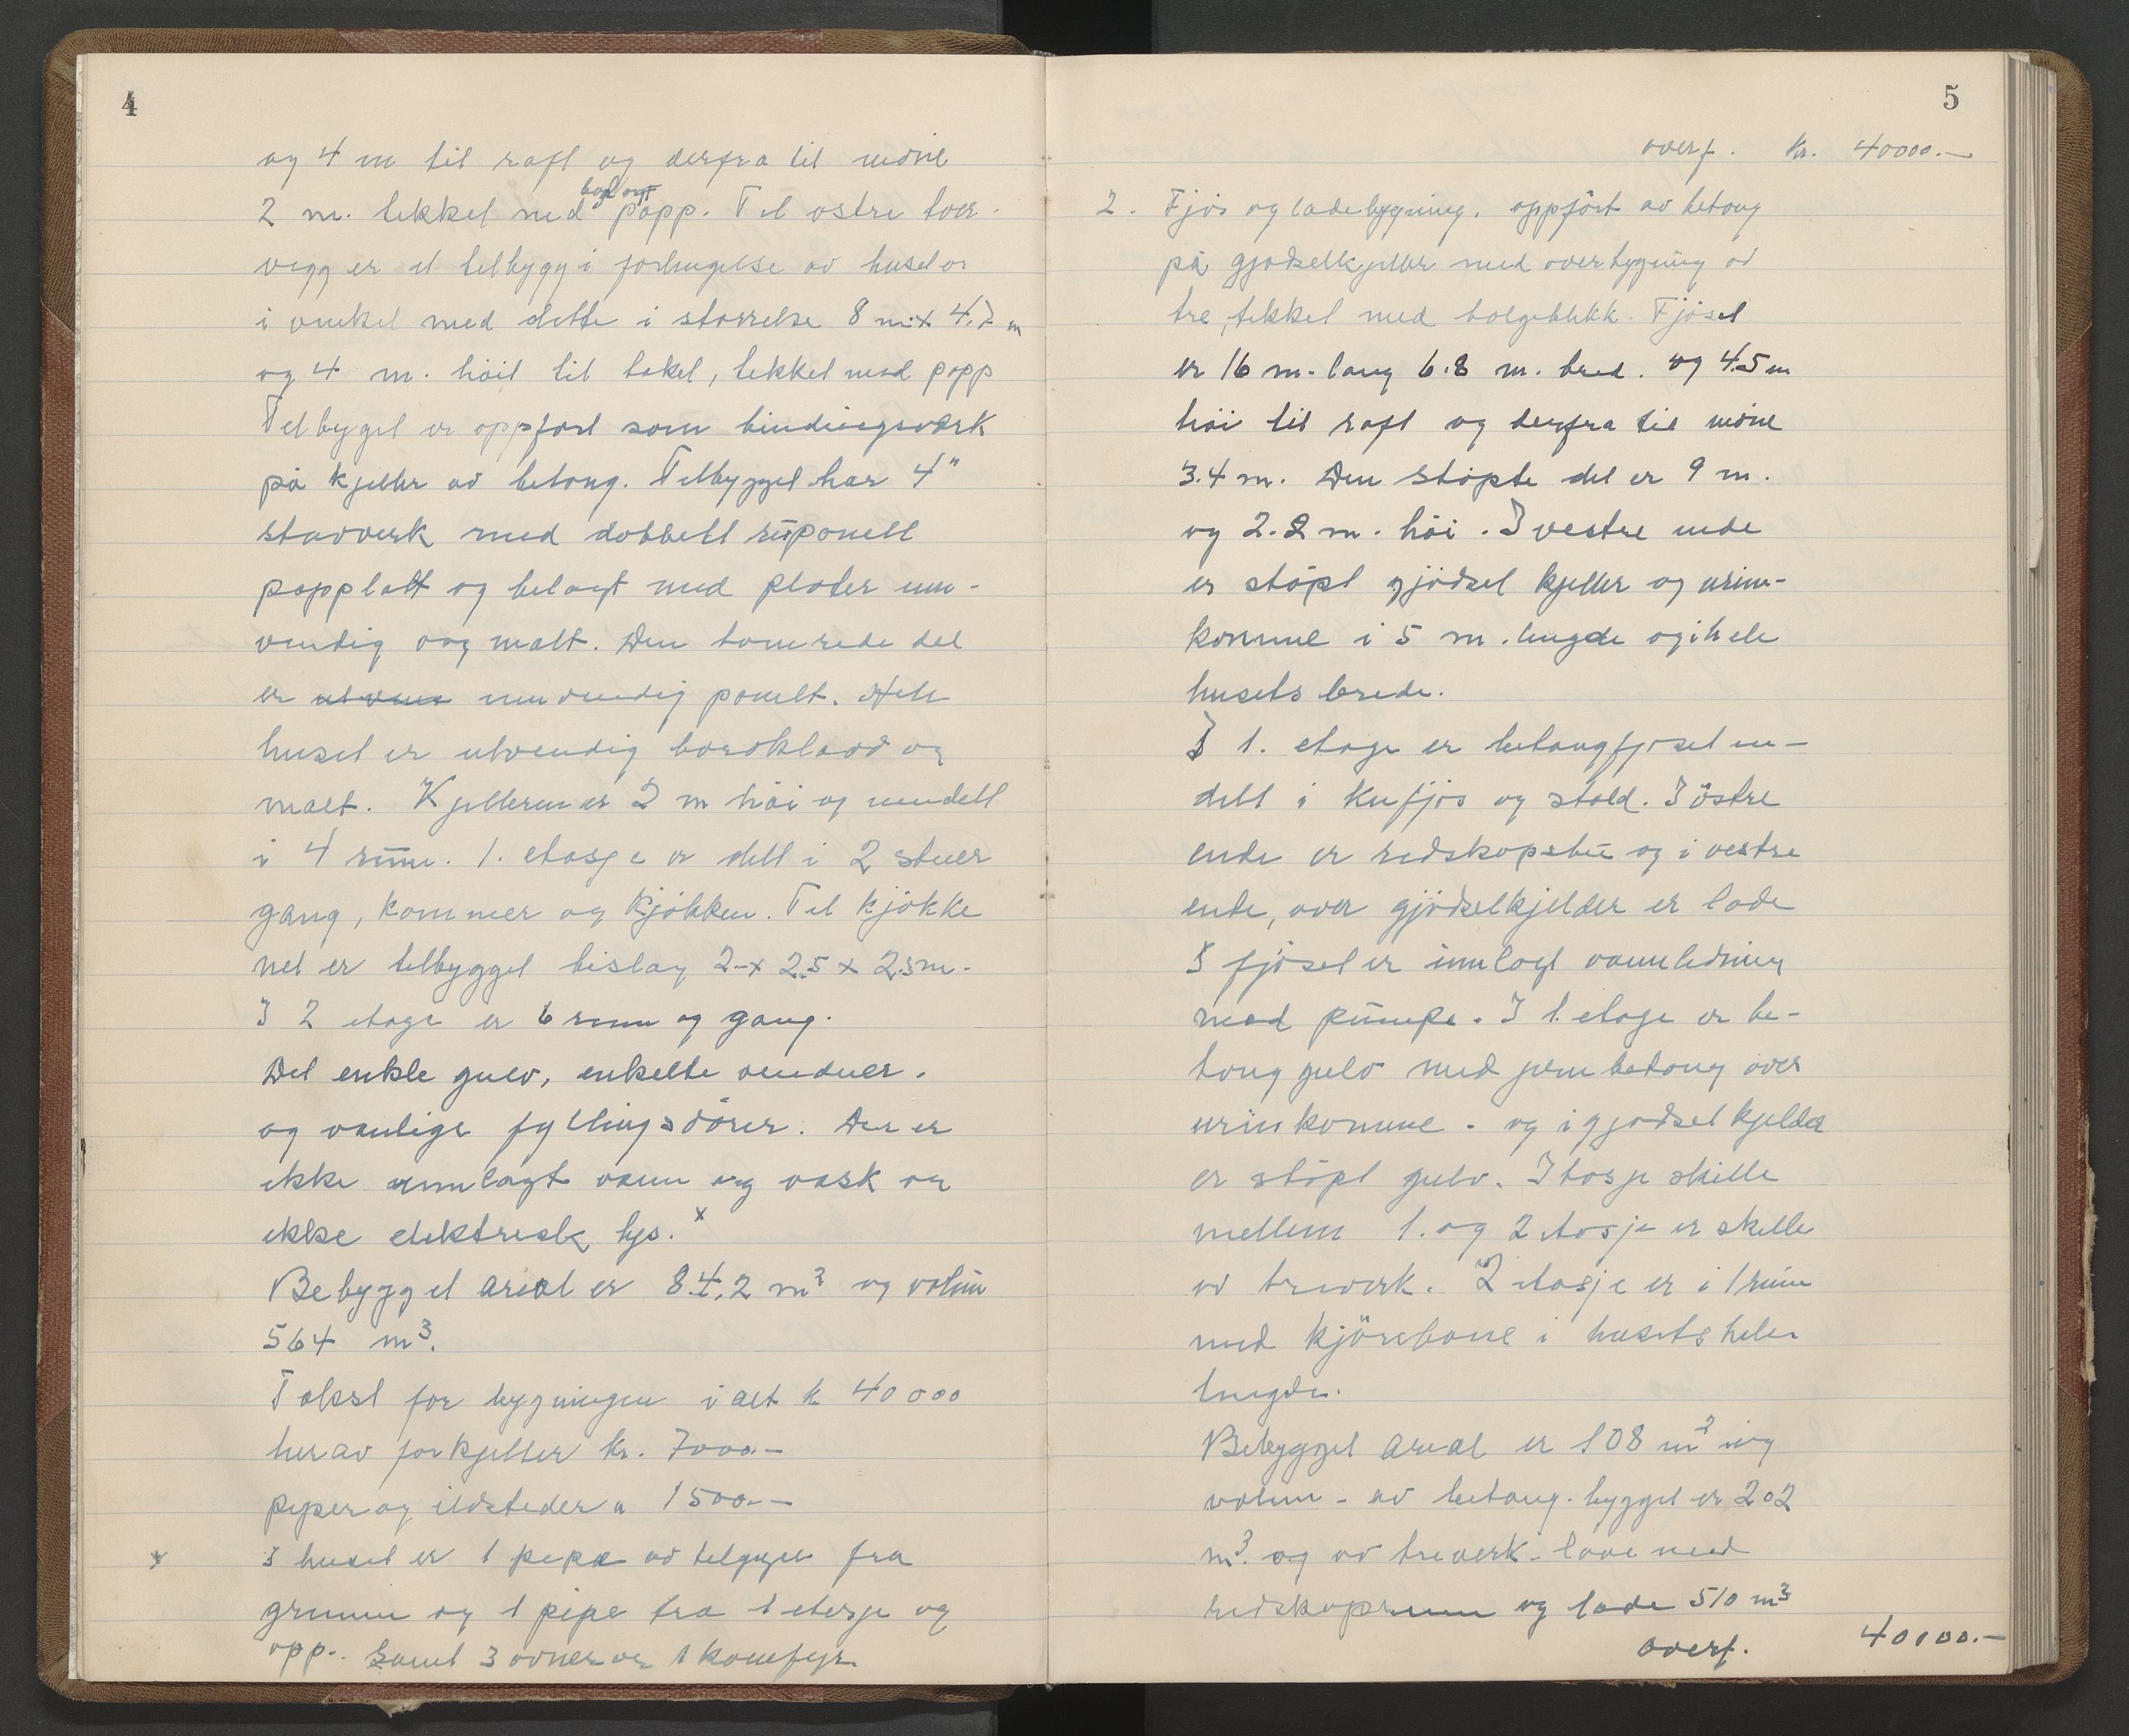 4
og 4 m til raft og derfra til möne
2 m. tekket med papp. Til østre tver-
vegg er et tilbygg i forlengelse av huset og
i vinkel med dette i størrelse 8 m x 4.7 m
og 4 m. höit til taket, tekket med papp
Tilbyget er oppført som bindingsverk
på kjeller av betong. Tilbygget har 4"
stavverk med dobbelt rupanell
papplatt og belagt med plater inn-
vendig og malt. Den tømrede del
er innvendig panelt. Hele
huset er utvendig bordkledd og
malt. Kjelleren er 2 m höi og inndelt
i 4 rum. 1. etasje er delt i 2 stuer
gang, kammer og kjökken. Til kjökke
net er tilbygget bislag 2 x 2.5 x 2.5 m.
I 2 etage er 6 rum og gang.
Det enkle gulv, enkelte vinduer.
og vanlige fyllingsdörer. Der er
ikke innlagt vann og vask og
ikke elektrisk lys. x
Bebygget areal er 84.2 m² og volum
564 m³.
Takst for bygningen i alt kr 40000
herav for kjeller kr. 7000.-
piper og ildsteder " 1500.-
x I huset er 1 pipe av teglsten fra
grunn og 1 pipe fra 1 etasje og
opp. Samt 3 ovner og 1 komfyr.
5
overf. kr. 40000.-
2. Fjös og ladebygning, oppfört av betong
på gjødselkjeller med overbygning av
tre, tekket med bølgeblikk. Fjöset
er 16 m. lang 6.8 m. bred. og 4.5 m
höi til raft og derfra til möne
3.4 m. Den stöpte del er 9 m.
og 2.2 m. höi. I vestre ende
er stöpt gjödsel kjeller og urin-
kumme i 5 m. lengde og i hele
husets brede.
I 1. etage er betongfjöset inn-
delt i kufjös og stald. I östre
ende er redskapsbu og i vestre
ende, over gjödselkjelder er lade
I fjöset er innlagt vannledning
med pumpe. I 1. etage er be-
tong gulv med jernbetong over
urinkumme - og i gjødselkjelder
er stöpt gulv. Etasje skille
mellem 1. og 2 etasje er skille
av treverk. 2 etasje er i 1 rum
med kjörebane i husets hele
lengde.
Bebygget areal er 108 m² og
volum - av betong. bygget er 202
m³. og av treverk - låve med
redskapsrum og lade 510 m³
overf. 40000.-